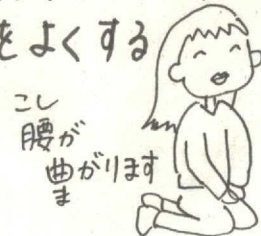 をよくする
こし
腰が
曲がります
ま